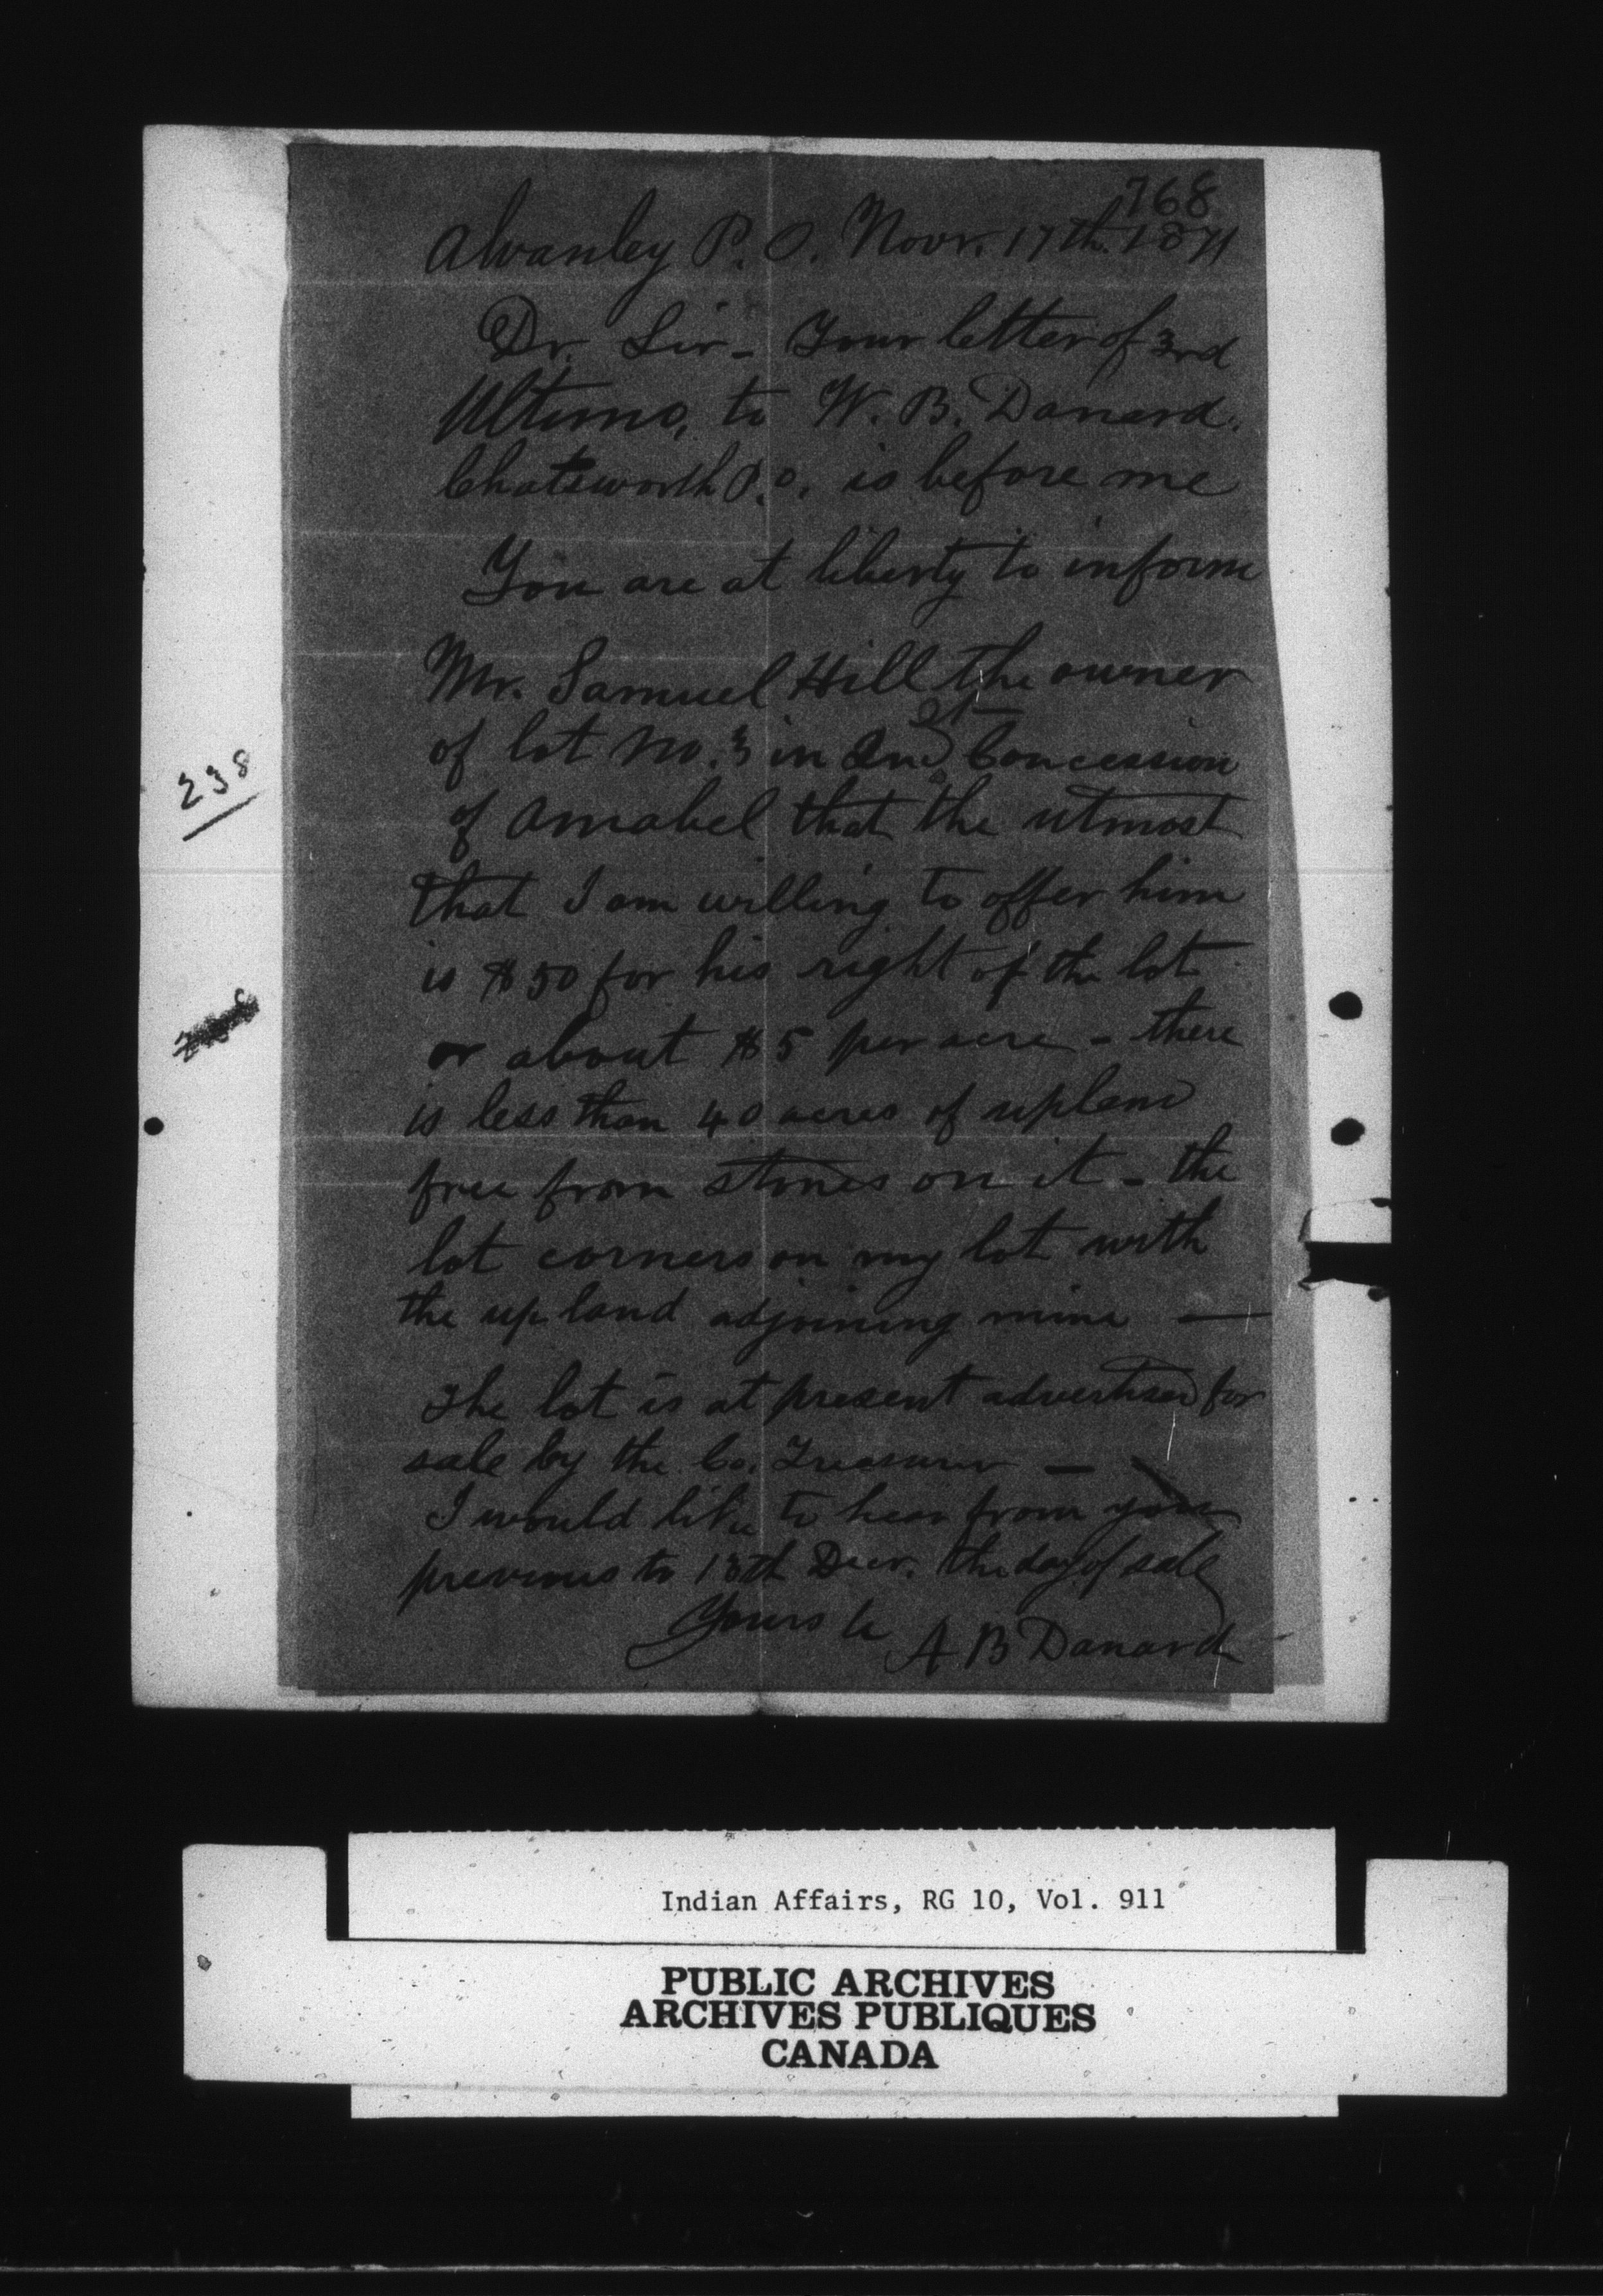 768
Alvanley P.O. Novr. 17th. 1871
Dr. Sir - Your letter of 3rd
Ultimo, to W. B. Danard.
Chatsworth P.O. is before me
You are at liberty to inform
Mr. Samuel Hill the owner
of lot No. 3 in 2nd Concession
of Amabel that the utmost
that I am willing to offer him
is $50 for his right of the lot
or about $5 per acre - there
is less than 40 acres of upland
free from stones on it - the
lot corners on my lot with
the up land adjoining mine —
The lot is at present advertised for
sale by the Co. Treasurer —
I would like to hear from you
previous to 13th Decr. the day of sale
Yours &c A B Danard
238
Indian Affairs, RG 10, Vol. 911
PUBLIC ARCHIVES
ARCHIVES PUBLIQUES
CANADA